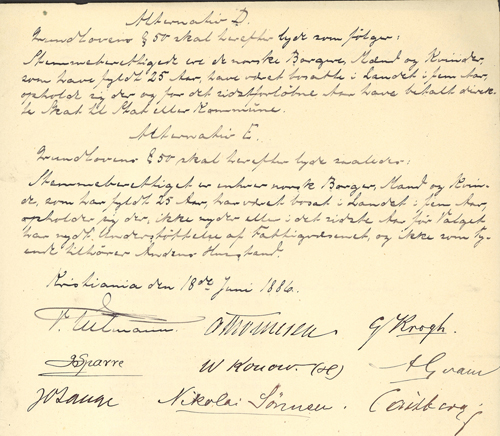 Alternativ D.
Grundlovens § 50 skal herefter lyde som følger:
Stemmeberettigede ere de norske Borgere, Mænd og Kvinder,
som have fyldt 25 Aar, have været bosatte i Landet i fem Aar,
opholde sig der og for det sidstforløbne Aar have betalt direk-
te Skat til Stat eller Kommune.
Alternativ E.
Grundlovens § 50 skal herefter lyde saaledes:
Stemmeberettiget er enhver norsk Borger, Mand og Kvin-
de, som har fyldt 25 Aar, har været bosat i Landet i fem Aar,
opholder sig der, ikke nyder eller i det sidste Aar før Valget
har nydt Understøttelse af Fattigvæsenet, og ikke som Ty-
ende tilhører Andens Husstand.
Kristiania den 18de Juni 1886.
V. Ullmann. O Thomesen G Krogh.
Sparre W Konow. (H) A Qvam
JO Lange Nikolai Sørensen. Castberg.